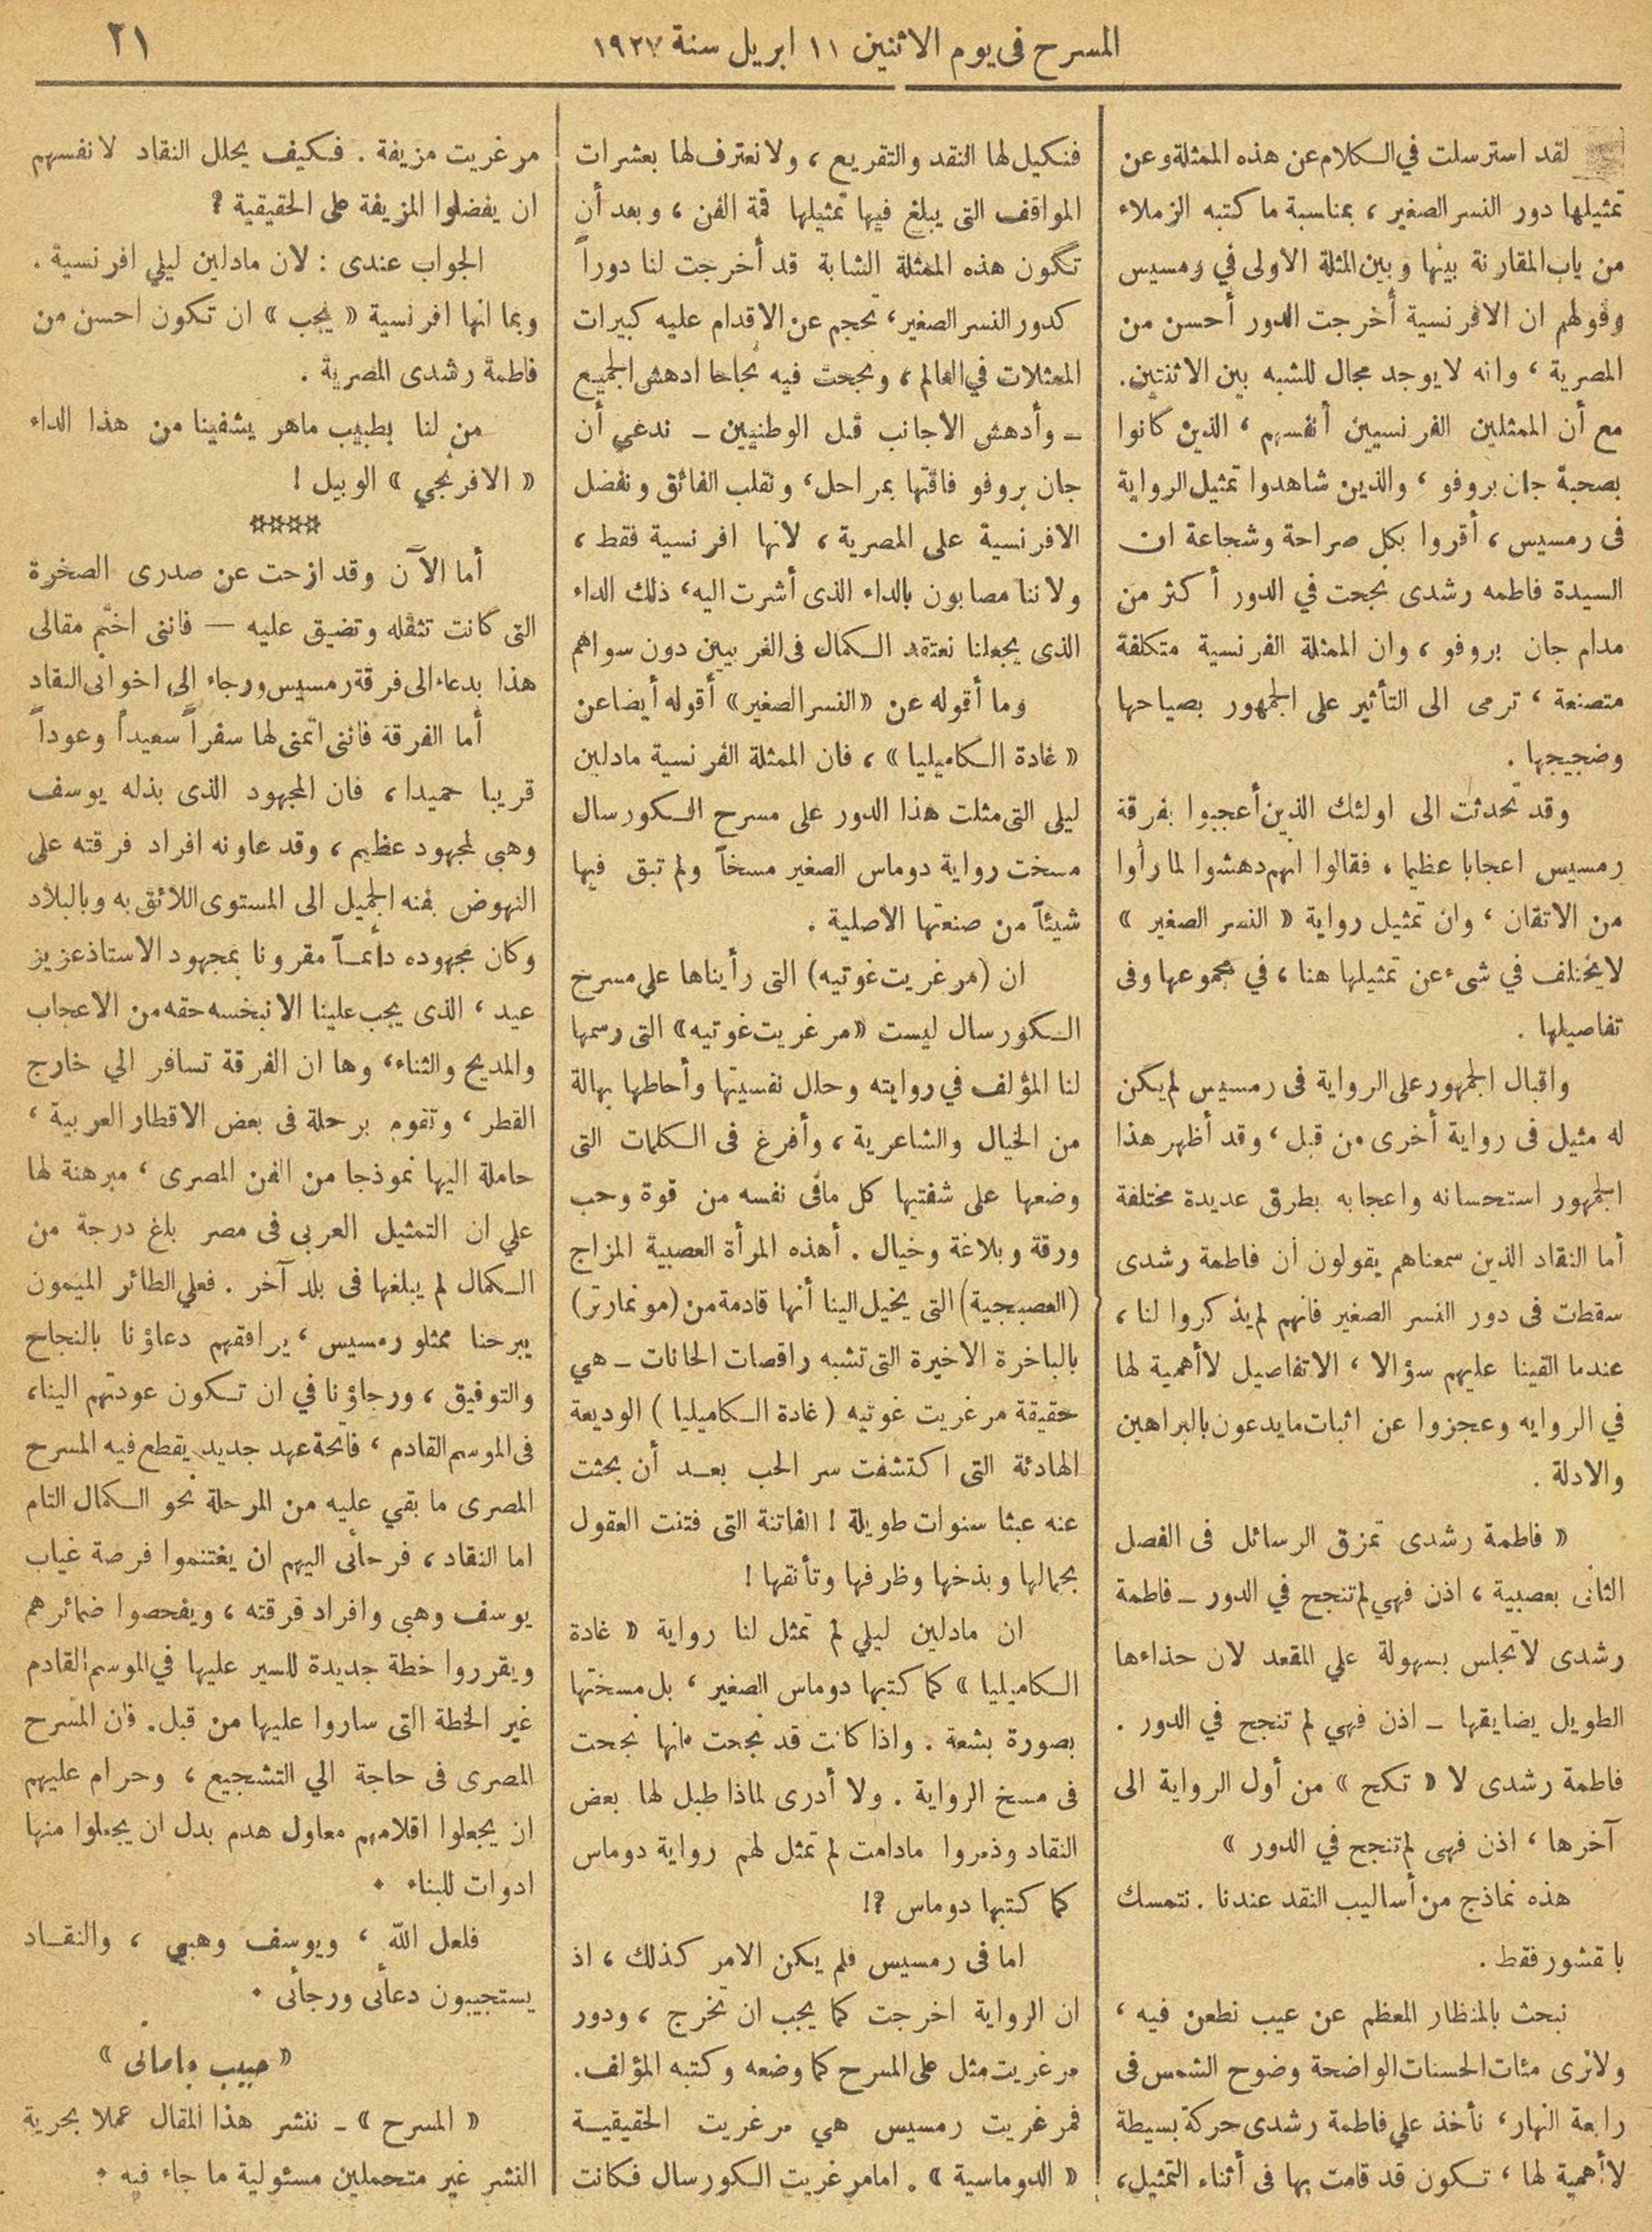 المسرح فى يوم الاثنين ١١ ابريل سنة ١٩٢٧
٢١
لقد استرسلت في الكلام عن هذه الممثلة وعن
تمثيلها دور النسر الصغير ، بمناسبة ما كتبه الزملاء
من ياب المقارنة بينها وبين المثلة الاولى في رمسيس
وقولهم ان الافرنسية أخرجت الدور أحسن من
المصرية ، وانه لا يوجد مجال للشبه بين الاثنتين.
مع أن الممثلين الفرنسيين أنفسهم ، الذين كانوا
بصحبة جان بروفو ، والذين شاهدوا تمثيل الرواية
فى رمسيس ، أقروا بكل صراحة وشجاعة ان
السيدة فاطمه رشدى نجحت في الدور أكثر من
مدام جان بروفو ، وان الممثلة الفرنسية متكلفة
متصنعة ، ترمى الى التأثير على الجمهور بصياحها
وضجيجها .
وقد تحدثت الى اولئك الذين أعجبوا بفرقة
رمسيس اعجابا عظيما ، فقالوا انهم دهشوا لما رأوا
من الاتقان ، وان تمثيل رواية « النسر الصغير »
لا يختلف في شىء عن تمثيلها هنا ، في مجموعها وفى
تفاصيلها .
واقبال الجمهور على الرواية فى رمسيس لم يكن
له مثيل فى رواية أخرى من قبل ، وقد أظهر هذا
الجمهور استحسانه واعجابه بطرق عديدة مختلفة
أما النقاد الذين سمعناهم يقولون أن فاطمة رشدى
سقطت فى دور النسر الصغير فانهم لم يذكروا لنا ،
عندما القينا عليهم سؤالا ، الا تفاصيل لا أهمية لها
في الروايه وعجزوا عن اثبات ما يدعون بالبراهين
والادلة .
« فاطمة رشدى تمزق الرسائل فى الفصل
الثانى بعصبية ، اذن فهي لم تنجح في الدور ـ فاطمة
رشدى لا تجلس بسهولة علي المقعد لان حذاءها
الطويل يضايقها ـ اذن فهي لم تنجح في الدور .
فاطمة رشدى لا « تكح » من أول الرواية الى
آخرها ، اذن فهى لم تنجح في الدور »
هذه نماذج من أساليب النقد عندنا . نتمسك
با قشور فقط .
نبحث بالمنظار المعظم عن عيب نطعن فيه ،
ولا نرى مئات الحسنات الواضحة وضوح الشمس فى
رابعة النهار ، نأخذ علي فاطمة رشدى حركة بسيطة
لا أهمية لها ، تكون قد قامت بها فى أثناء التمثيل ،
فنكيل لها النقد والتقريع ، ولا نعترف لها بعشرات
المواقف التى يبلغ فيها تمثيلها قمة الفن ، وبعد أن
تكون هذه الممثلة الشابة قد أخرجت لنا دوراً
كدور النسر الصغير ، تحجم عن الاقدام عليه كبيرات
الممثلات في العالم ، ونجحت فيه نجاحا ادهش الجميع
ـ وأدهش الاجانب قبل الوطنيين ـ ندعي أن
جان بروفو فاقتها بمراحل ، ونقلب الفائق ونفضل
الافرنسية على المصرية ، لانها افرنسية فقط ،
ولاننا مصابون بالداء الذى أشرت اليه ، ذلك الداء
الذى يجعلنا نعتقد الكمال فى الغربيين دون سواهم
وما أقوله عن « النسر الصغير » أقوله أيضا عن
« غادة الكاميليا » ، فان الممثلة الفرنسية مادلين
ليلى التى مثلت هذا الدور على مسرح الكورسال
مسخت رواية دوماس الصغير مسخاً ولم تبق فيها
شيئاً من صنعتها الاصلية .
ان (مرغريت غوتيه) التى رأيناها على مسرح
الكورسال ليست « مرغريت غوتيه » التى رسمها
لنا المؤلف في روايته وحلل نفسيتها وأحاطها بهالة
من الخيال والشاعرية ، وأفرغ فى الكلمات التى
وضعها على شفتيها كل مافى نفسه من قوة وحب
ورقة وبلاغة وخيال . أهذه المرأة العصبية المزاج
(العصبجية) التى يخيل الينا أنها قادمة من (مونمارتر)
بالباخرة الاخيرة التى تشبه راقصات الحانات ـ هي
حقيقة مرغريت غوتيه (غادة الكاميليا) الوديعة
الهادئة التى اكتشفت سر الحب بعد أن بحثت
عنه عبثا سنوات طويلة ! الفاتنة التى فتنت العقول
بجمالها وبذخها وظرفها وتأنقها !
ان مادلين ليلي لم تمثل لنا رواية « غادة
الكاميليا » كما كتبها دوماس الصغير ، بل مسختها
بصورة بشعة . واذا كانت قد نجحت فانها نجحت
فى مسخ الرواية . ولا أدرى لماذا طبل لها بعض
النقاد وزمروا مادامت لم تمثل لهم رواية دوماس
كما كتبها دوماس ؟!
اما فى رمسيس فلم يكن الامر كذلك ، اذ
ان الرواية اخرجت كما يجب ان تخرج ، ودور
مرغريت مثل على المسرح كما وضعه وكتبه المؤلف.
فمرغريت رمسيس هي مرغريت الحقيقية
« الدوماسية » . اما مرغريت الكورسال فكانت
مرغريت مزيفة . فكيف يحلل النقاد لانفسهم
ان يفضلوا المزيفة على الحقيقية ؟
الجواب عندى : لان مادلين ليلي افرنسية .
وبما انها افرنسية « يجب » ان تكون احسن من
فاطمة رشدى المصرية .
من لنا بطبيب ماهر يشفينا من هذا الداء
« الافرنجي » الوبيل !
****
أما الآن وقد ازحت عن صدرى الصخرة
التى كانت تثقله وتضيق عليه — فاننى اختم مقالى
هذا بدعاء الى فرقة رمسيس ورجاء الى اخوانى النقاد
أما الفرقة فاننى اتمنى لها سفراً سعيداً وعوداً
قريبا حميدا ، فان المجهود الذى بذله يوسف
وهبي لمجهود عظيم ، وقد عاونه افراد فرقته على
النهوض بفنه الجميل الى المستوى اللائق به وبالبلاد
وكان مجهوده دائماً مقرونا بمجهود الاستاذ عزيز
عيد ، الذى يجب علينا الا نبخسه حقه من الاعجاب
والمديح والثناء ، وها ان الفرقة تسافر الي خارج
القطر ، وتقوم برحلة فى بعض الاقطار العربية ،
حاملة اليها نموذجا من الفن المصرى ، مبرهنة لها
علي ان التمثيل العربى فى مصر بلغ درجة من
الكمال لم يبلغها فى بلد آخر . فعلي الطائر الميمون
يبرحنا ممثلو رمسيس ، يرافقهم دعاؤنا بالنجاح
والتوفيق ، ورجاؤنا في ان تكون عودتهم الينا ،
فى الموسم القادم ، فاتحة عهد جديد يقطع فيه المسرح
المصرى ما بقي عليه من المرحلة نحو الكمال التام
اما النقاد ، فرجائى اليهم ان يغتنموا فرصة غياب
يوسف وهبي وافراد فرقته ، ويفحصوا ضمائرهم
ويقرروا خطة جديدة للسير عليها في الموسم القادم
غير الخطة التى ساروا عليها من قبل . فان المسرح
المصرى فى حاجة الي التشجيع ، وحرام عليهم
ان يجعلوا اقلامهم معاول هدم بدل ان يجعلوا منها
ادوات للبناء .
فلعل الله ، ويوسف وهبي ، والنقاد
يستجيبون دعائى ورجائى .
« حبيب جاماتى »
« المسرح » ـ ننشر هذا المقال عملا بحرية
النشر غير متحملين مسئولية ما جاء فيه .